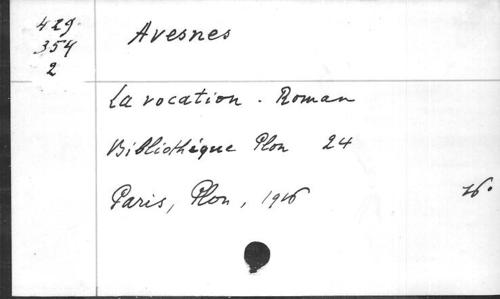 429.
354
2
Avesnes
La vocation. Roman
Bibliothèque Plon 24
Paris, Plon, 1926
16.